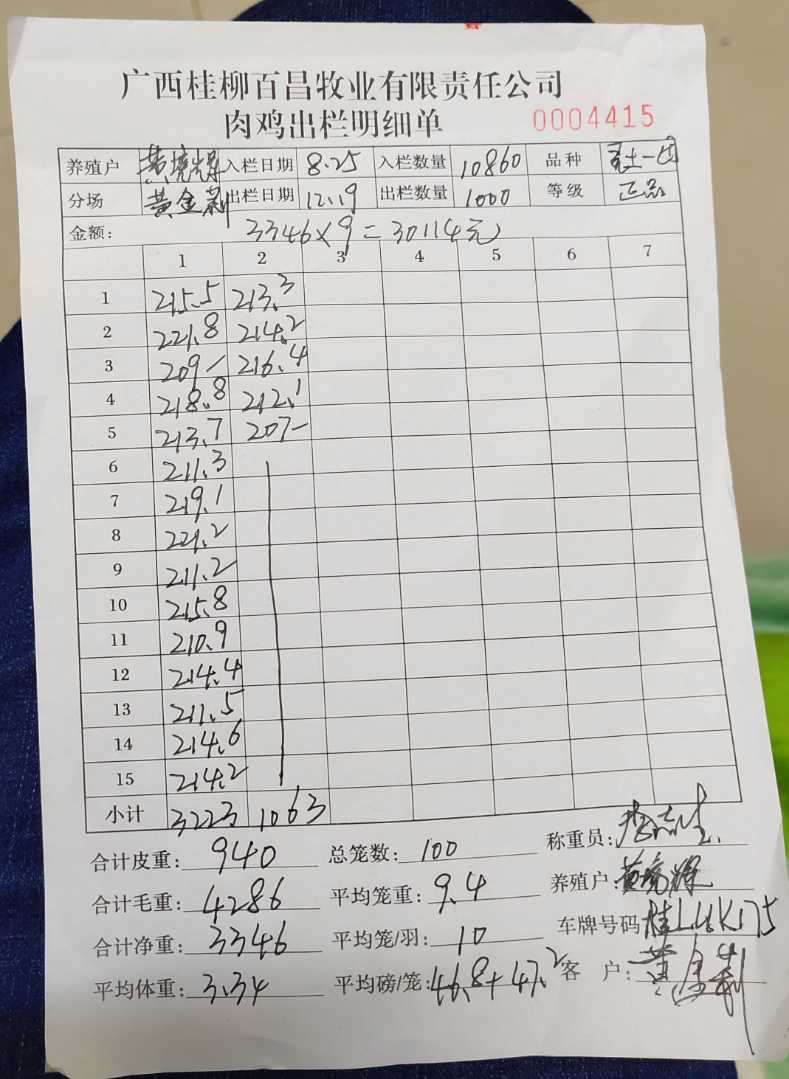 广西桂柳百昌牧业有限责任公司
肉鸡出栏明细单 0004415
养殖户 黄境辉 入栏日期 8.25 入栏数量 10860 品种
分场 黄金莉 出栏日期 12.19 出栏数量 1000 等级 正品
金额: 3346×9=30114元
1 2 3 4 5 6 7
1 215.5 213.3
2 221.8 214.2
3 209- 216.4
4 218.8 212.1
5 213.7 207-
6 211.3
7 219.1
8 221.2
9 211.2
10 215.8
11 210.9
12 214.4
13 211.5
14 214.6
15 214.2
小计 3223 1063
合计皮重: 940 总笼数: 100 称重员:
合计毛重: 4286 平均笼重: 9.4 养殖户:
合计净重: 3346 平均笼/羽: 10 车牌号码
平均体重: 3.34 平均磅/笼: 46.8+47.2 客 户: 黄金莉